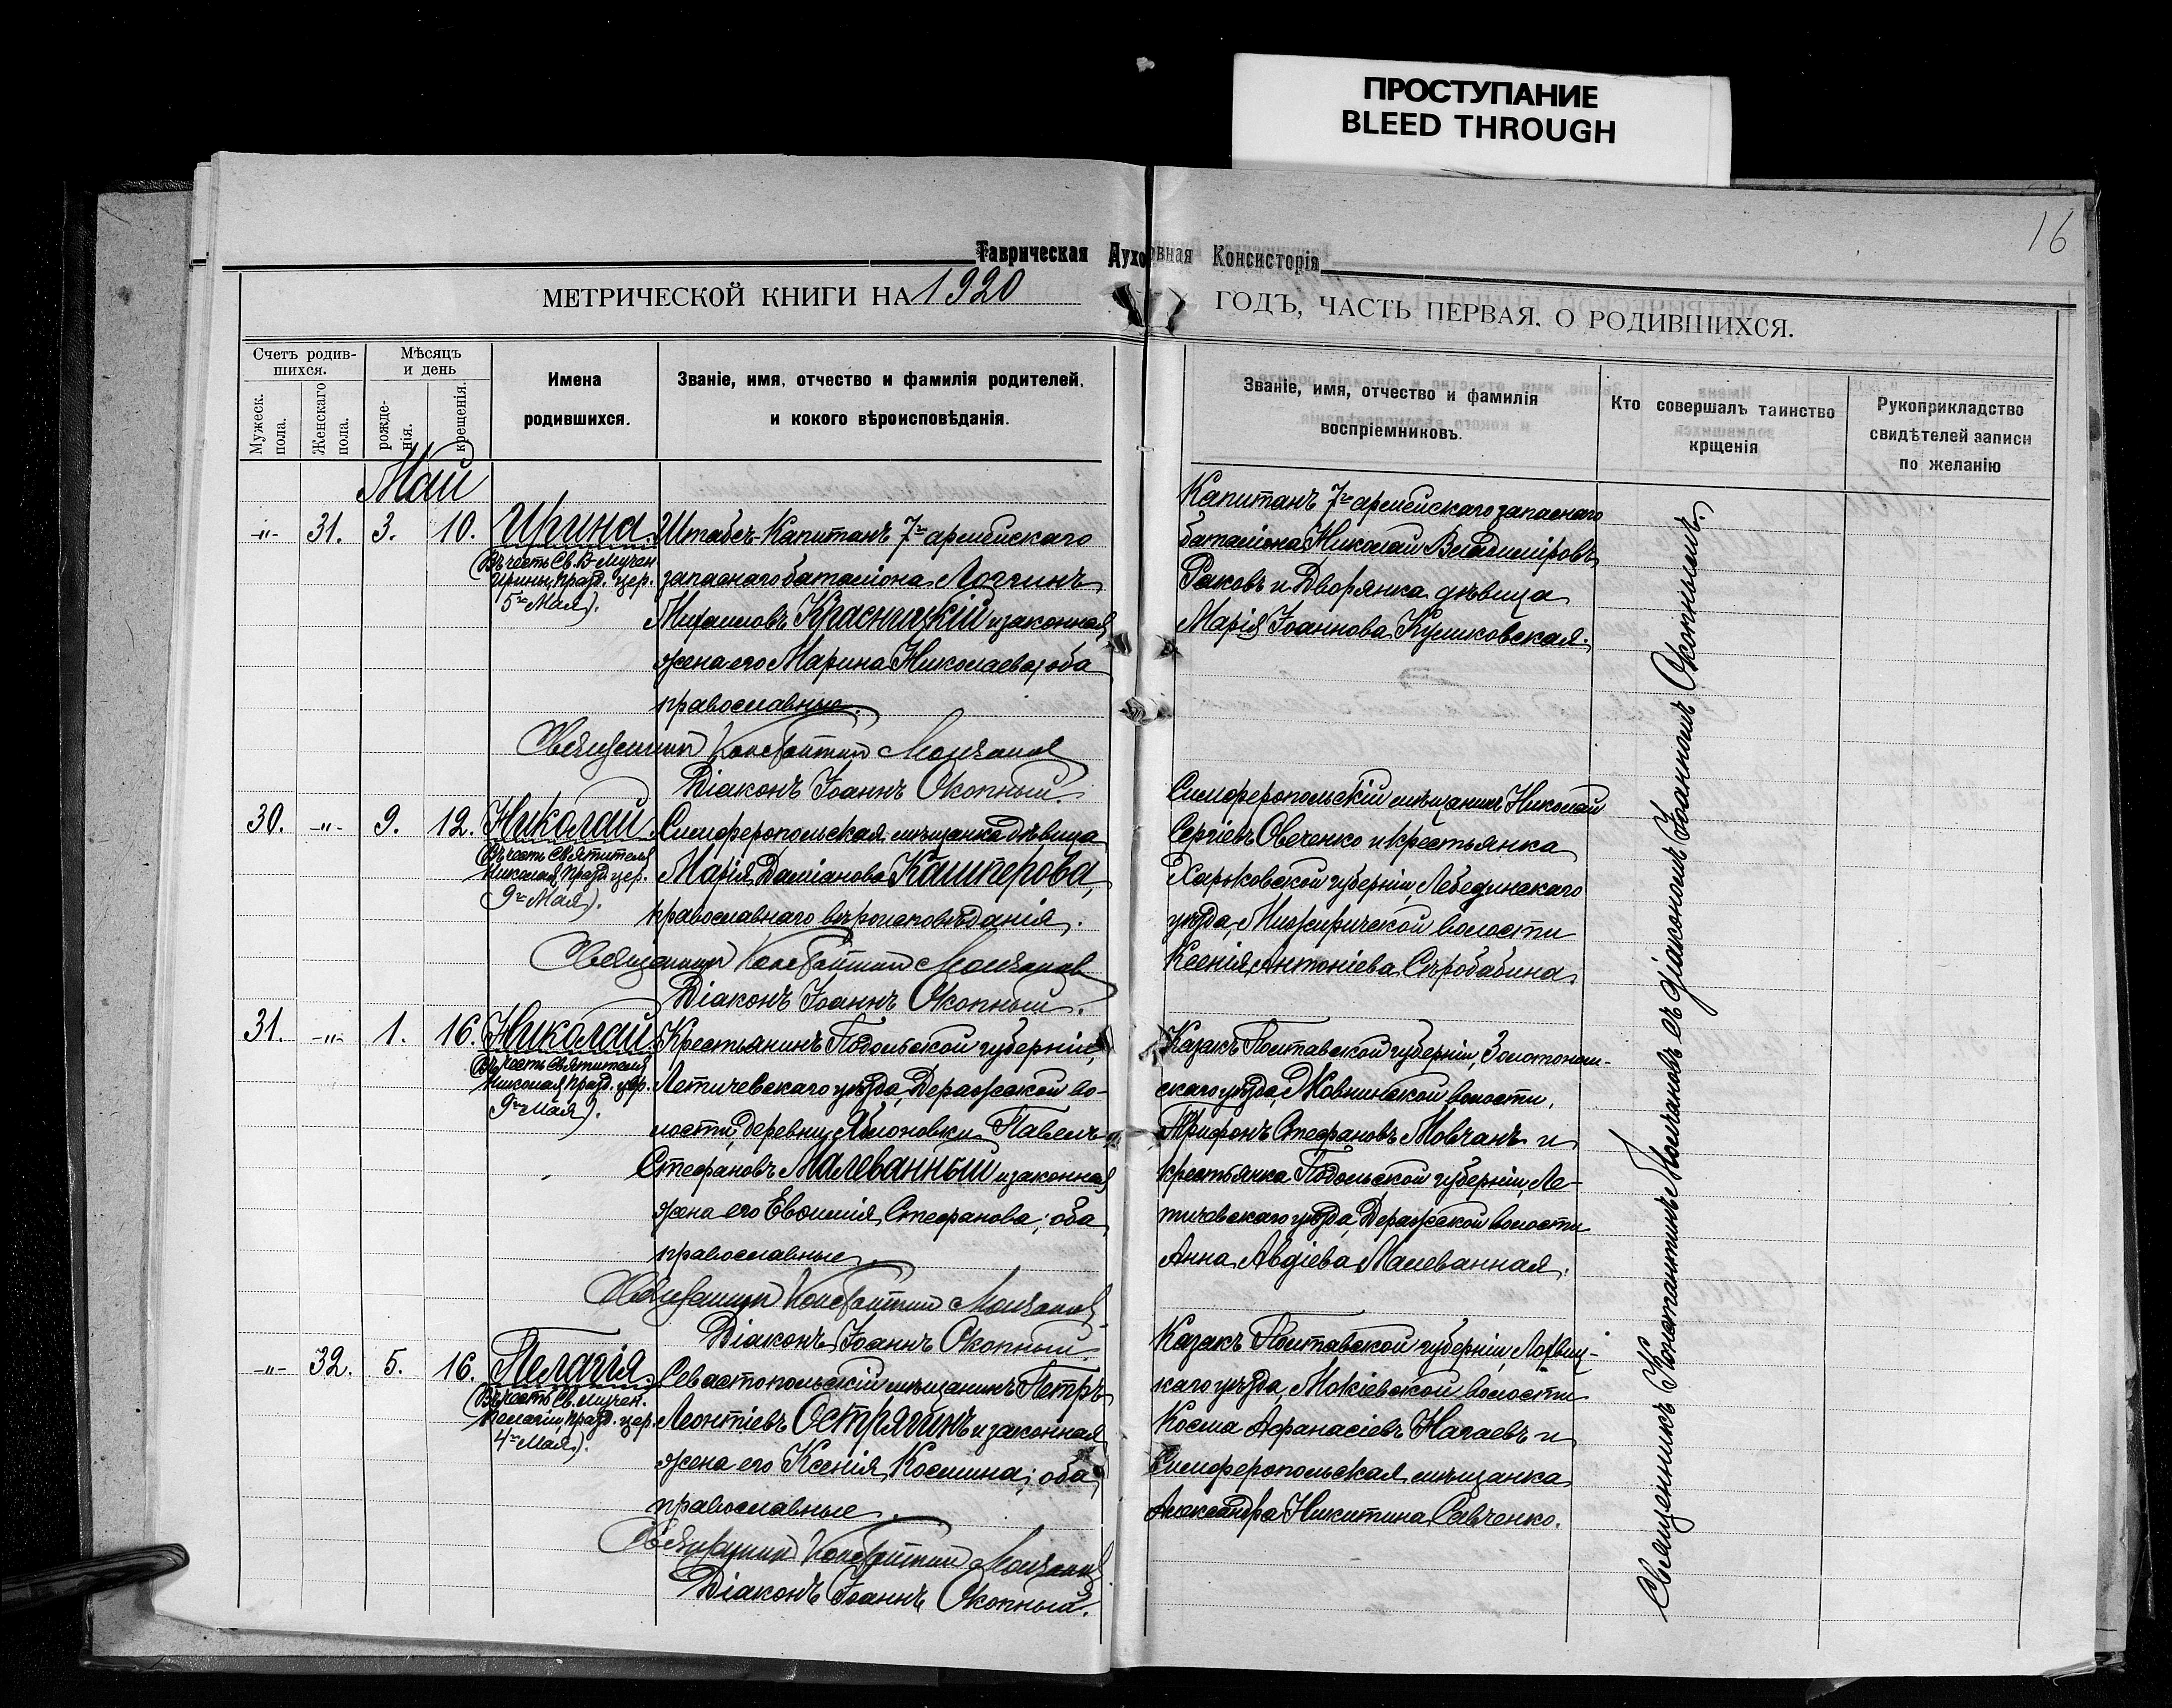 ПРОСТУПАНИЕ
BLEED THROUGH
16
Таврическая Духовная Консисторія
МЕТРИЧЕСКОЙ КНИГИ НА 1920
ГОДЪ, ЧАСТЬ ПЕРВАЯ, О РОДИВШИХСЯ.
Счетъ родив-
шихся.
Мужеск.
пола.
Женскаго
пола.
Мѣсяцъ
и день
рожде-
нія.
крещенія.
Имена
родившихся.
Званіе, имя, отчество и фамилія родителей,
и кокого вѣроисповѣданія.
Званіе, имя, отчество и фамилія
воспріемниковъ.
Кто совершалъ таинство
крщенія
Рукоприкладство
свидѣтелей записи
по желанію
Май
-"- 31. 3. 10. Ирина.
(Въ честь Св. В-Мучен.
Ирины, празд. цер.
5го Мая).
Штабсъ-Капитанъ 7го армейскаго
запаснаго баталіона Логгинъ
Михаиловъ Красницкій и законная
жена его Марина Николаева; оба
православные.
Священникъ Константинъ Молчановъ
Діаконъ Іоаннъ Окопный.
Капитанъ 7го армейскаго запаснаго
баталіона Николай Владиміровъ
Раковъ и Дворянка дѣвица
Марія Іоаннова Куликовская.
30. -"- 9. 12. Николай
(Въ честь Святителя
Николая, празд. цер.
9го Мая).
Симферопольская мѣщанка дѣвица
Марія Даміанова Кашперова,
православнаго вѣроисповѣданія.
Священникъ Константинъ Молчановъ
Діаконъ Іоаннъ Окопный.
Симферопольскій мѣщанинъ Николай
Сергіевъ Овеченко и крестьянка
Харьковской губерніи, Лебединскаго
уѣзда, Межиричской волости
Ксенія Антоніева Сыробабина.
31. -"- 1. 16. Николай
(Въ честь Святителя
Николая, празд. цер.
9го Мая).
Крестьянинъ Подольской губерніи,
Летичевскаго уѣзда, Деражской во-
лости, деревни Яблоновки Павелъ
Стефановъ Малеванный и законная
жена его Евѳимія Стефанова; оба
православные.
Священникъ Константинъ Молчановъ
Діаконъ Іоаннъ Окопный.
Казакъ Полтавской губерніи, Золотонош-
скаго уѣзда, Жовнинской волости,
Трифонъ Стефановъ Мовчанъ и
крестьянка Подольской губерніи, Ле-
тичевскаго уѣзда, Деражской волости
Анна Авдіева Малеванная.
-"- 32. 5. 16. Пелагія.
(Въ честь Св. Мучен.
Пелагіи, празд. цер.
4го Мая).
Севастопольскій мѣщанинъ Петръ
Леонтіевъ Острягинъ и законная
жена его Ксенія Космина; оба
православные.
Священникъ Константинъ Молчановъ
Діаконъ Іоаннъ Окопный.
Казакъ Полтавской губерніи, Лохвиц-
каго уѣзда, Мокіевской волости
Косма Афанасіевъ Нагаевъ и
Симферопольская мѣщанка
Александра Никитина Савченко.
Священникъ Константинъ Молчановъ съ діакономъ Іоанномъ Окопнымъ.